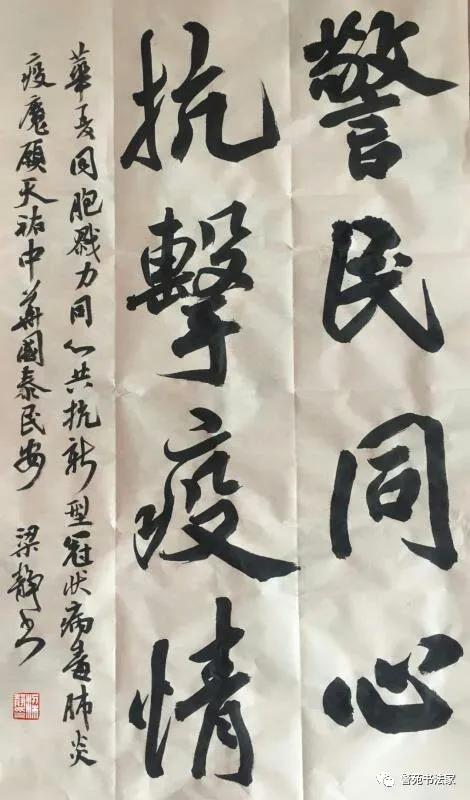 警民同心
抗擊疫情
華夏同胞戮力同心共抗新型冠狀病毒肺炎
疫魔願天祐中華國泰民安
梁静书
警苑书法家